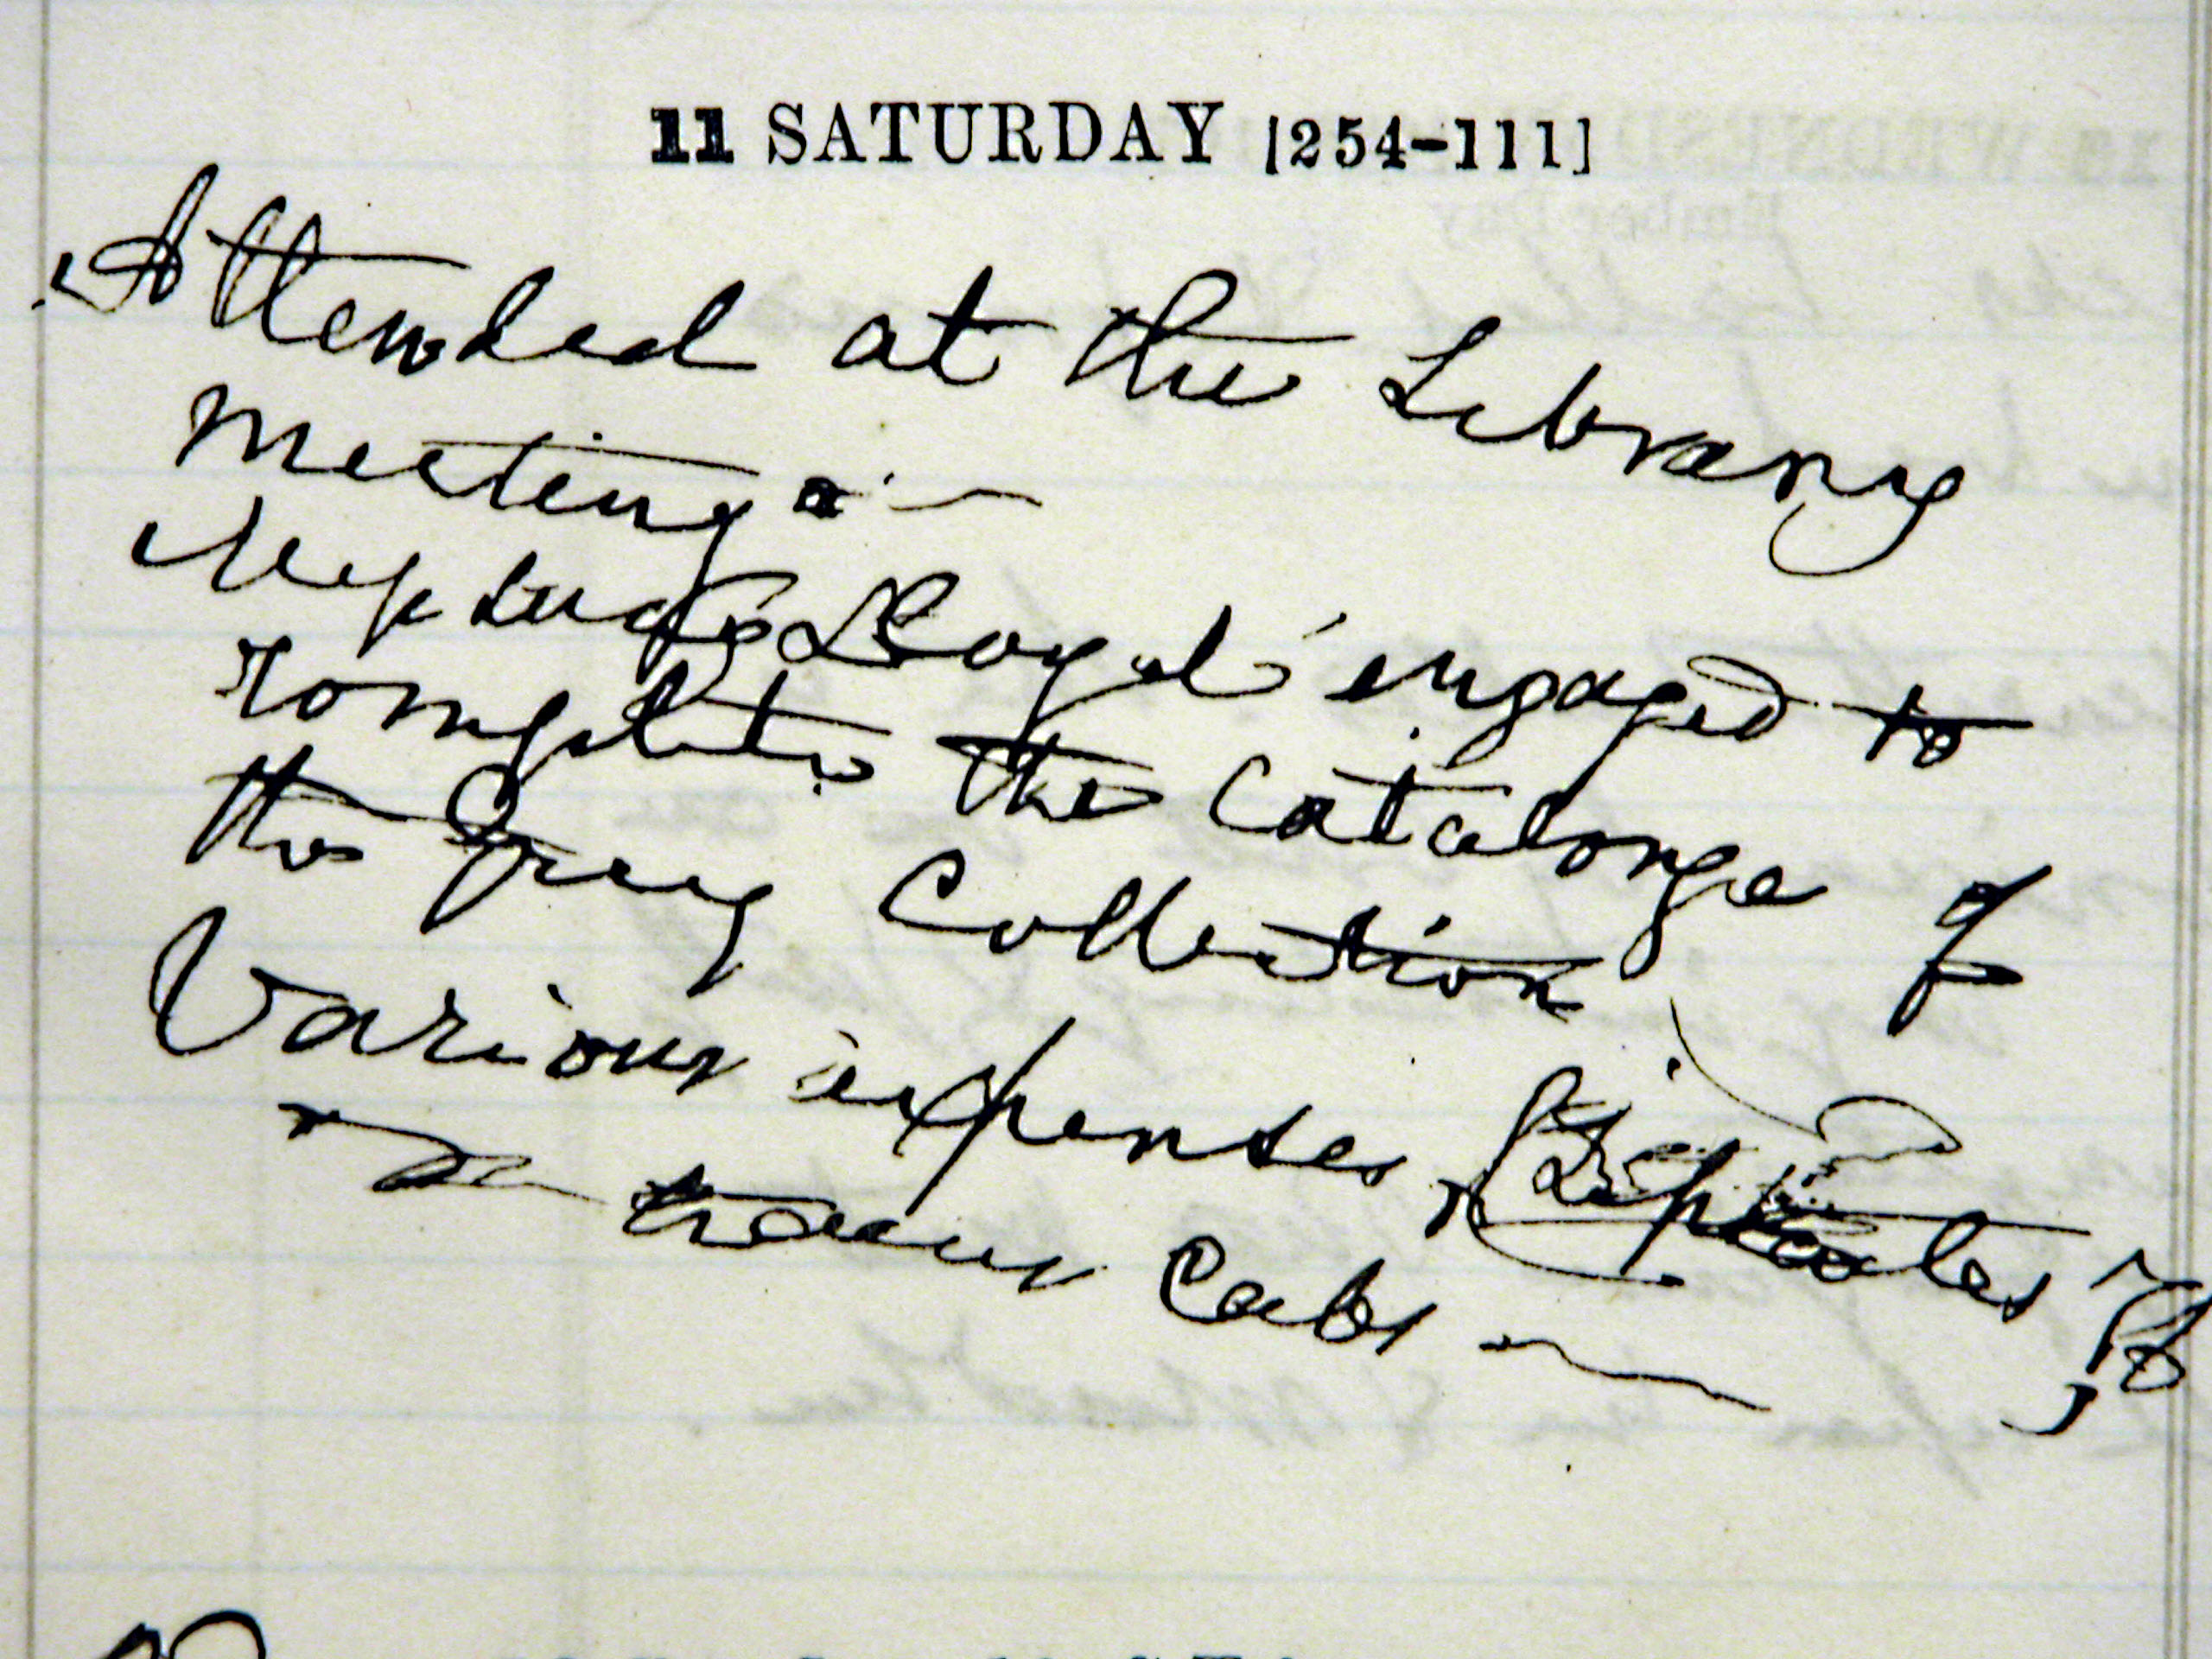 11 SATURDAY [254-111]
Attended at the Library
Meeting
Lloyd engaged to
complete the Catalouge of
the Grey Collection
Various expenses
trams Cabs